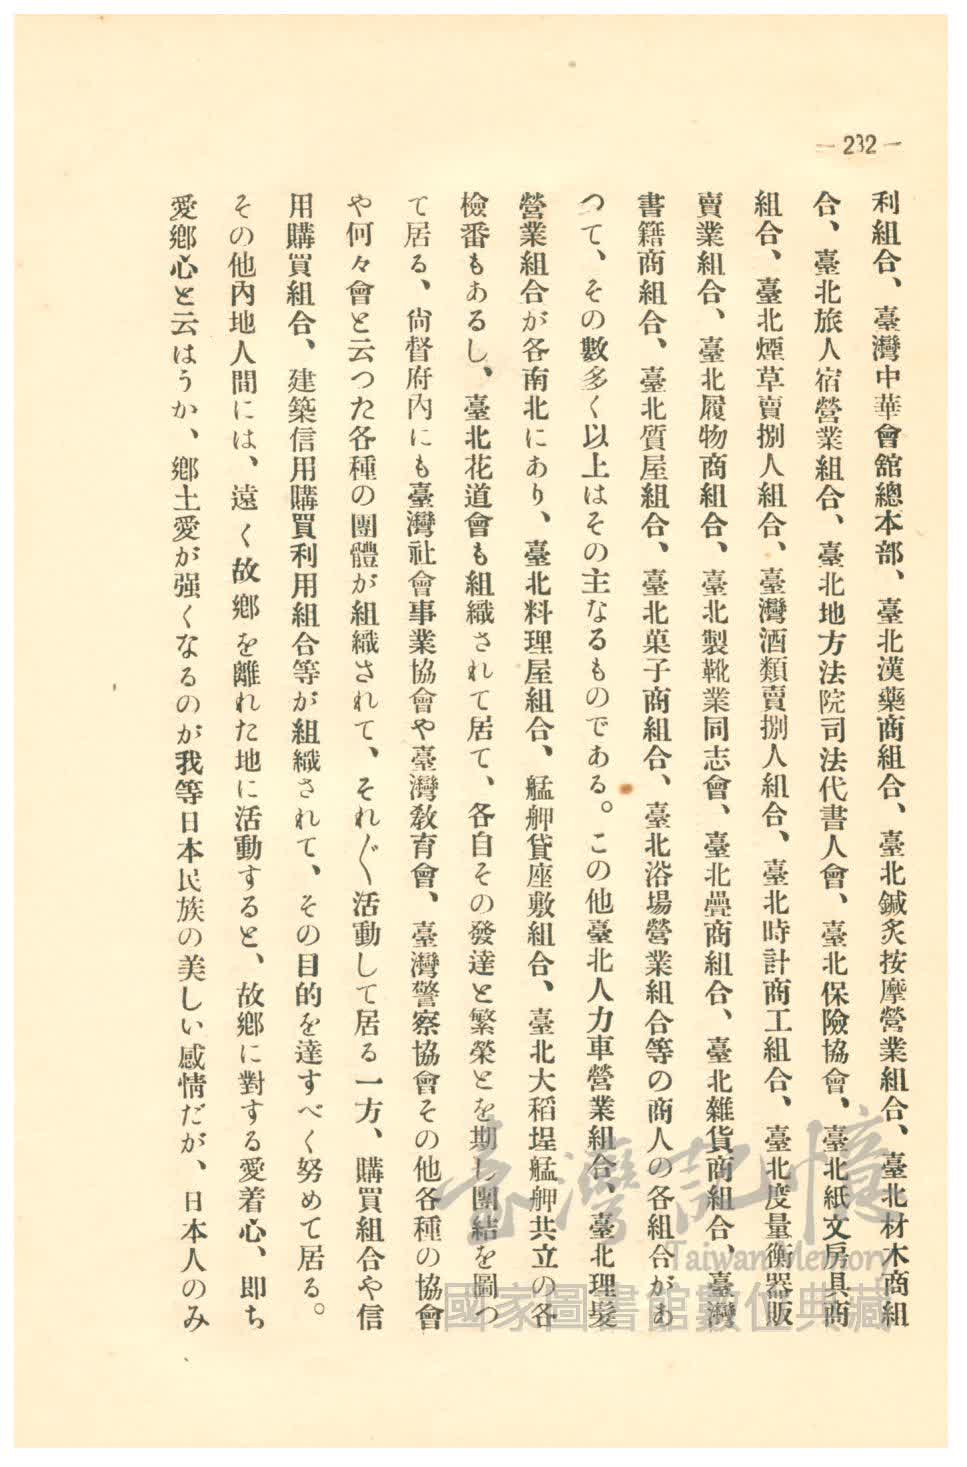 — 232 —
利組合、臺灣中華會舘總本部、臺北漢藥商組合、臺北鍼灸按摩營業組合、臺北材木商組
合、臺北旅人宿營業組合、臺北地方法院司法代書人會、臺北保險協會、臺北紙文房具商
組合、臺北煙草賣捌人組合、臺灣酒類賣捌人組合、臺北時計商工組合、臺北度量衡器販
賣業組合、臺北履物商組合、臺北製靴業同志會、臺北疊商組合、臺北雜貨商組合、臺灣
書籍商組合、臺北質屋組合、臺北菓子商組合、臺北浴場營業組合等の商人の各組合があ
つて、その數多く以上はその主なるものである。この他臺北人力車營業組合、臺北理髮
營業組合が各南北にあり、臺北料理屋組合、艋舺貸座敷組合、臺北大稻埕艋舺共立の各
檢番もあるし、臺北花道會も組織されて居て、各自その發達と繁榮とを期し團結を圖つ
て居る、尙督府內にも臺灣社會事業協會や臺灣敎育會、臺灣警察協會その他各種の協會
や何々會と云つた各種の團體が組織されて、それ〴〵活動して居る一方、購買組合や信
用購買組合、建築信用購買利用組合等が組織されて、その目的を達すべく努めて居る。
その他內地人間には、遠く故鄕を離れた地に活動すると、故鄕に對する愛着心、卽ち
愛鄕心と云はうか、鄕土愛が强くなるのが我等日本民族の美しい感情だが、日本人のみ
臺灣記憶
Taiwan Memory
國家圖書館數位典藏